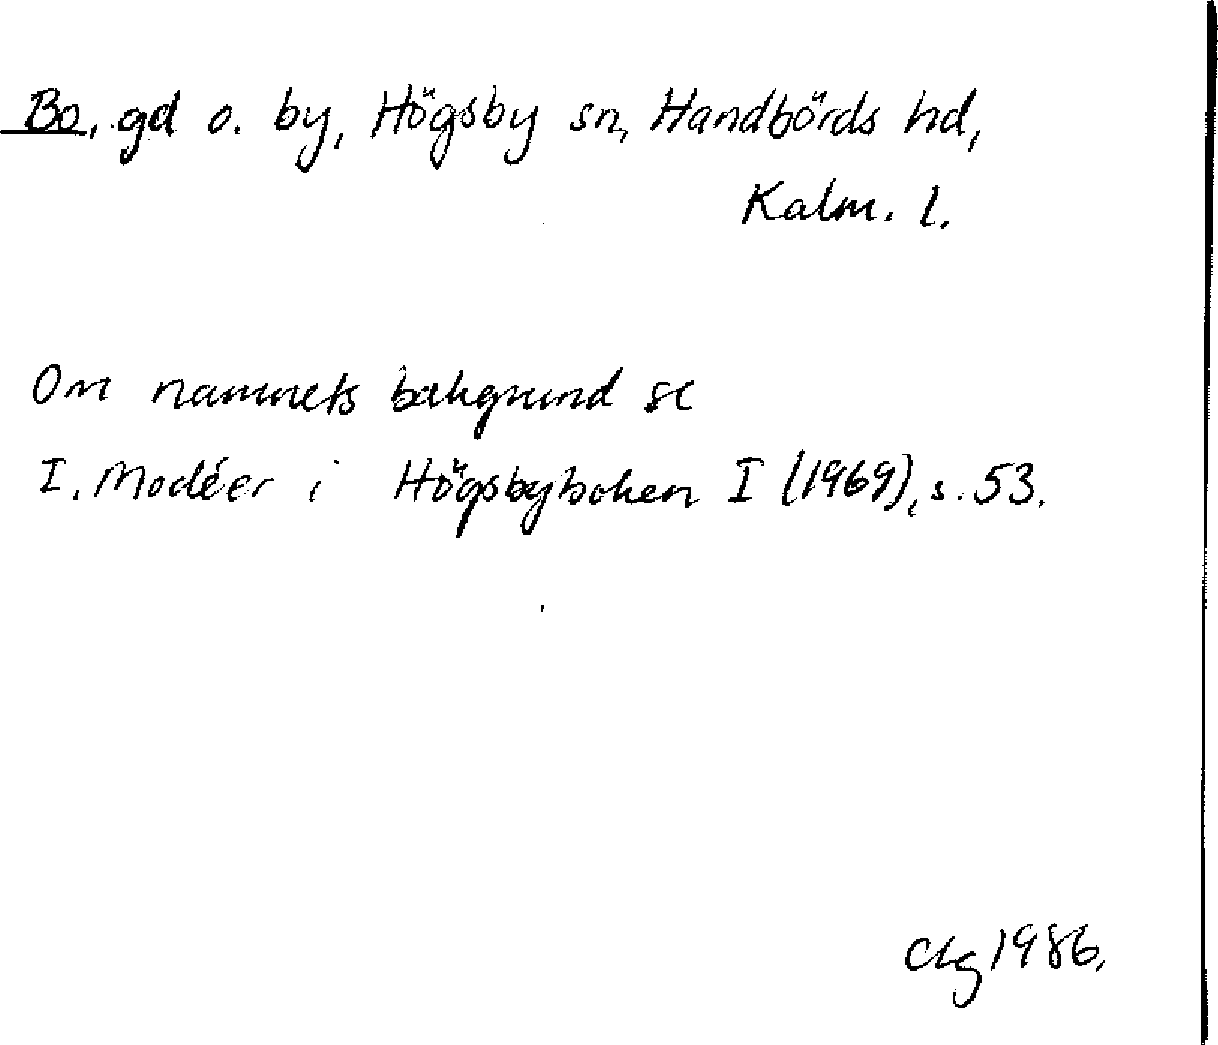 Bo, gd o. by, Högsby sn, Handbörds hd,
Kalm. l.
Om namnets bakgrund se
I. Modéer i Högsbyboken I (1969), s. 53.
1986.